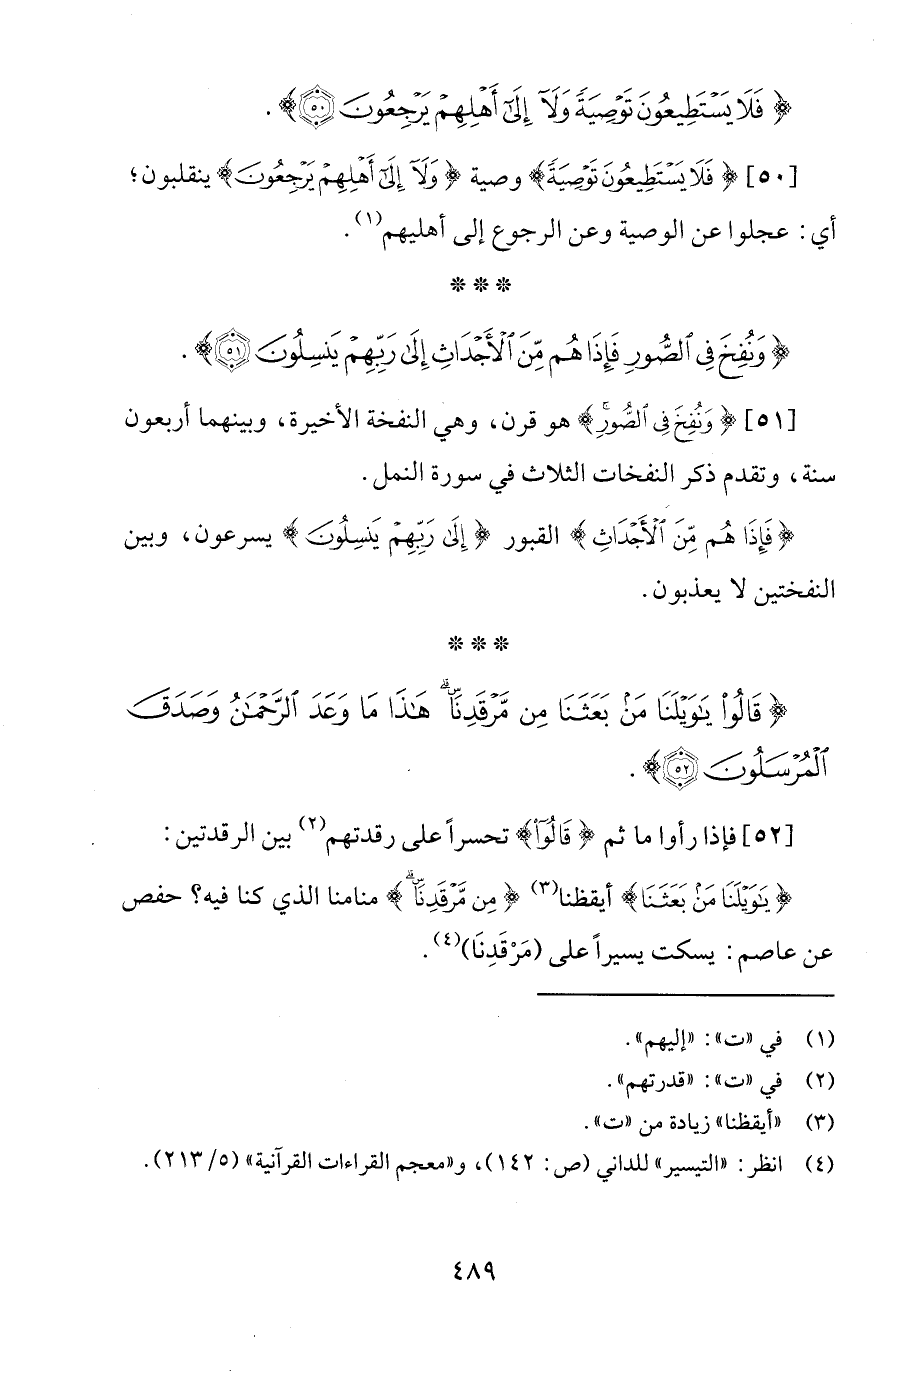 ﴿ فَلَا يَسْتَطِيعُونَ تَوْصِيَةً وَلَآ إِلَىٰٓ أَهْلِهِمْ يَرْجِعُونَ ۝٥٠ ﴾.
[٥٠] ﴿ فَلَا يَسْتَطِيعُونَ تَوْصِيَةً ﴾ وصية ﴿ وَلَآ إِلَىٰٓ أَهْلِهِمْ يَرْجِعُونَ ﴾ ينقلبون؛
أي: عجلوا عن الوصية وعن الرجوع إلى أهليهم(١).
* * *
﴿ وَنُفِخَ فِى ٱلصُّورِ فَإِذَا هُم مِّنَ ٱلْأَجْدَاثِ إِلَىٰ رَبِّهِمْ يَنسِلُونَ ۝٥١ ﴾.
[٥١] ﴿ وَنُفِخَ فِى ٱلصُّورِ ﴾ هو قرن، وهي النفخة الأخيرة، وبينهما أربعون
سنة، وتقدم ذكر النفخات الثلاث في سورة النمل.
﴿ فَإِذَا هُم مِّنَ ٱلْأَجْدَاثِ ﴾ القبور ﴿ إِلَىٰ رَبِّهِمْ يَنسِلُونَ ﴾ يسرعون، وبين
النفختين لا يعذبون.
* * *
﴿ قَالُوا۟ يَٰوَيْلَنَا مَنۢ بَعَثَنَا مِن مَّرْقَدِنَا ۜ ۗ هَٰذَا مَا وَعَدَ ٱلرَّحْمَٰنُ وَصَدَقَ
ٱلْمُرْسَلُونَ ۝٥٢ ﴾.
[٥٢] فإذا رأوا ما ثم ﴿ قَالُوٓا۟ ﴾ تحسراً على رقدتهم(٢) بين الرقدتين:
﴿ يَٰوَيْلَنَا مَنۢ بَعَثَنَا ﴾ أيقظنا(٣) ﴿ مِن مَّرْقَدِنَا ۜ ۗ ﴾ منامنا الذي كنا فيه؟ حفص
عن عاصم: يسكت يسيراً على (مَرْقَدِنَا)(٤).
(١) في «ت»: «إليهم».
(٢) في «ت»: «قدرتهم».
(٣) «أيقظنا» زيادة من «ت».
(٤) انظر: «التيسير» للداني (ص: ١٤٢)، و«معجم القراءات القرآنية» (٥/ ٢١٣).
٤٨٩